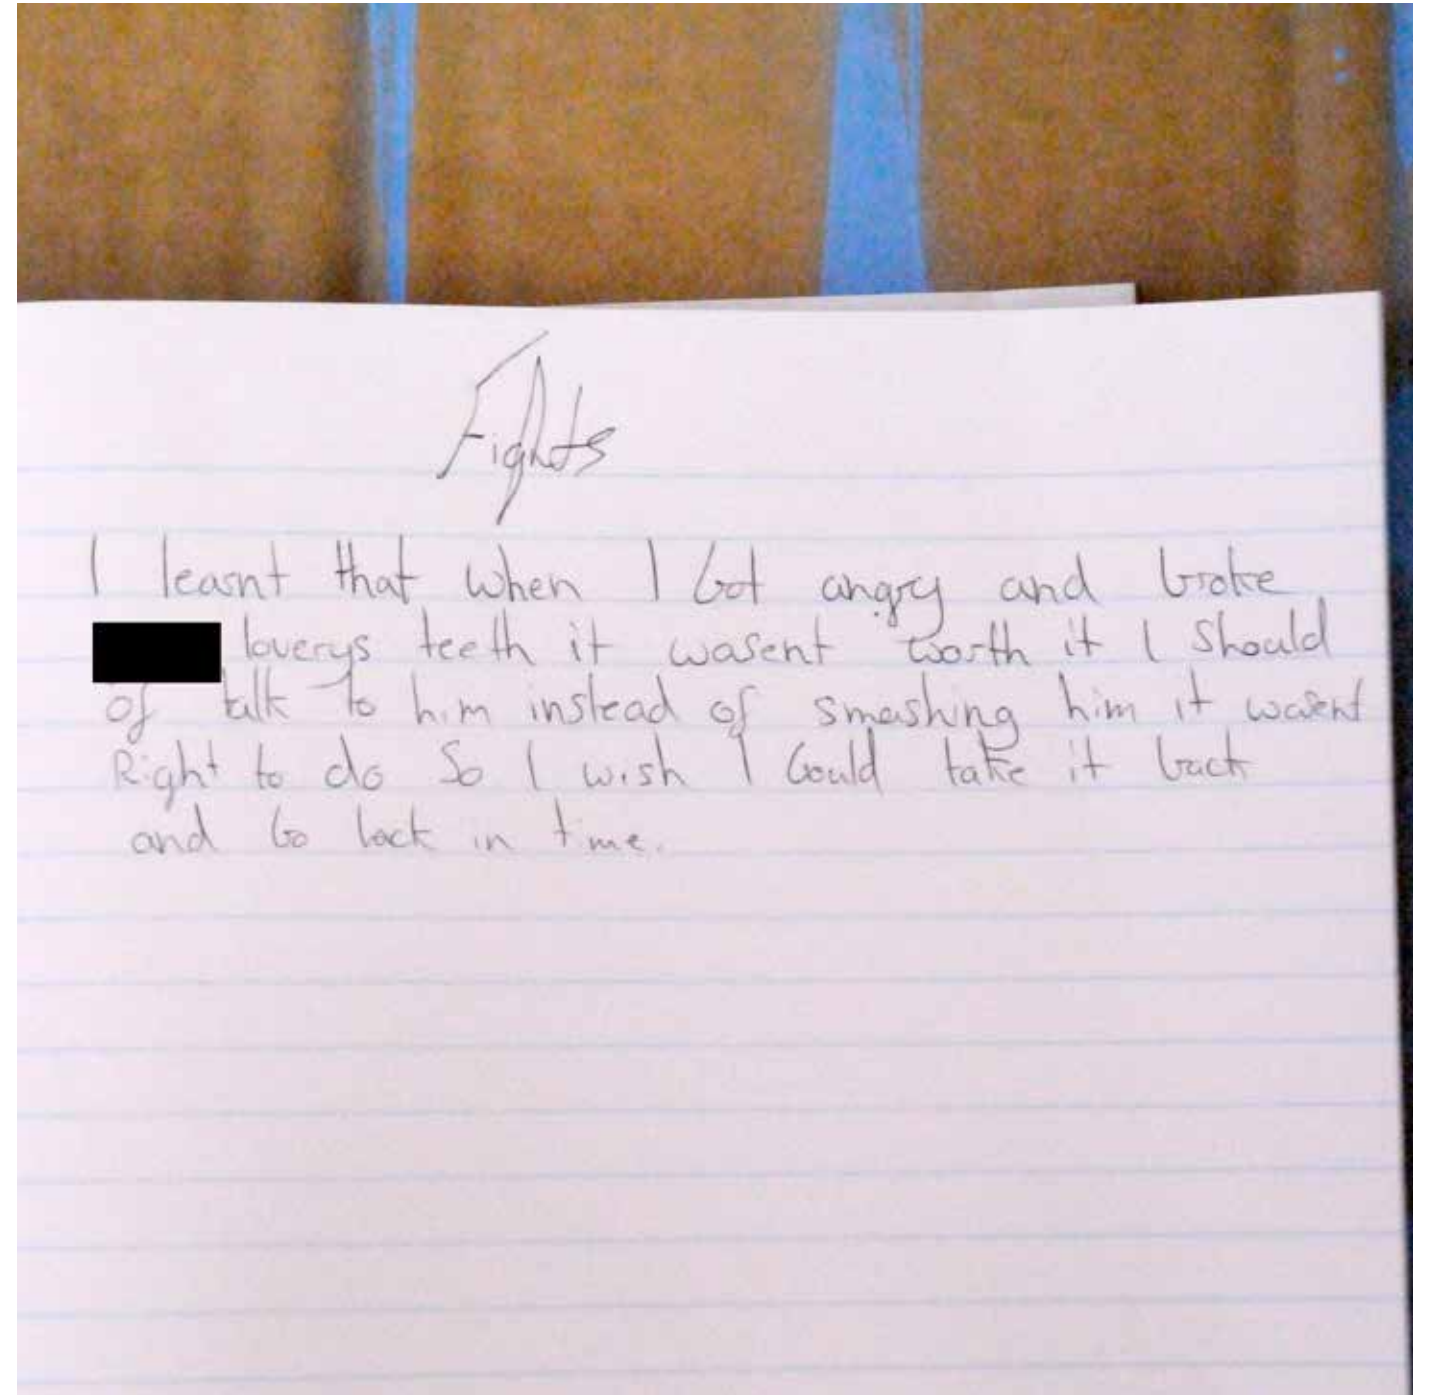 Fights
I learnt that when I Got angry and broke
loverys teeth it wasent worth it I should
of talk to him instead of smashing him it wasent
Right to do So I wish I Could take it back
and Go back in time.